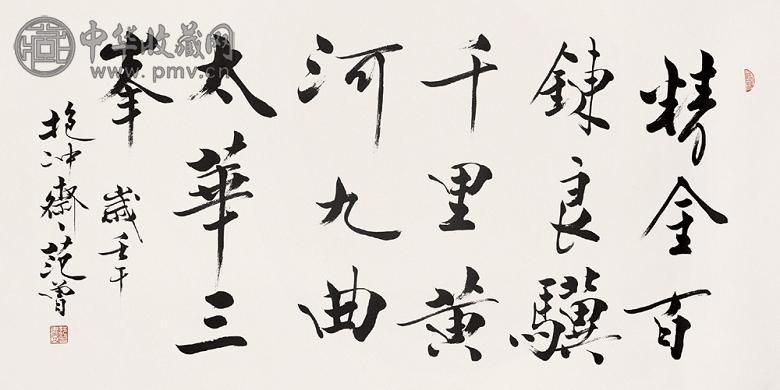 精金百
鍊良驥
千里黄
河九曲
太華三
峯
歲壬午
抱冲齋、范曾
中华收藏网
www.pmv.cn